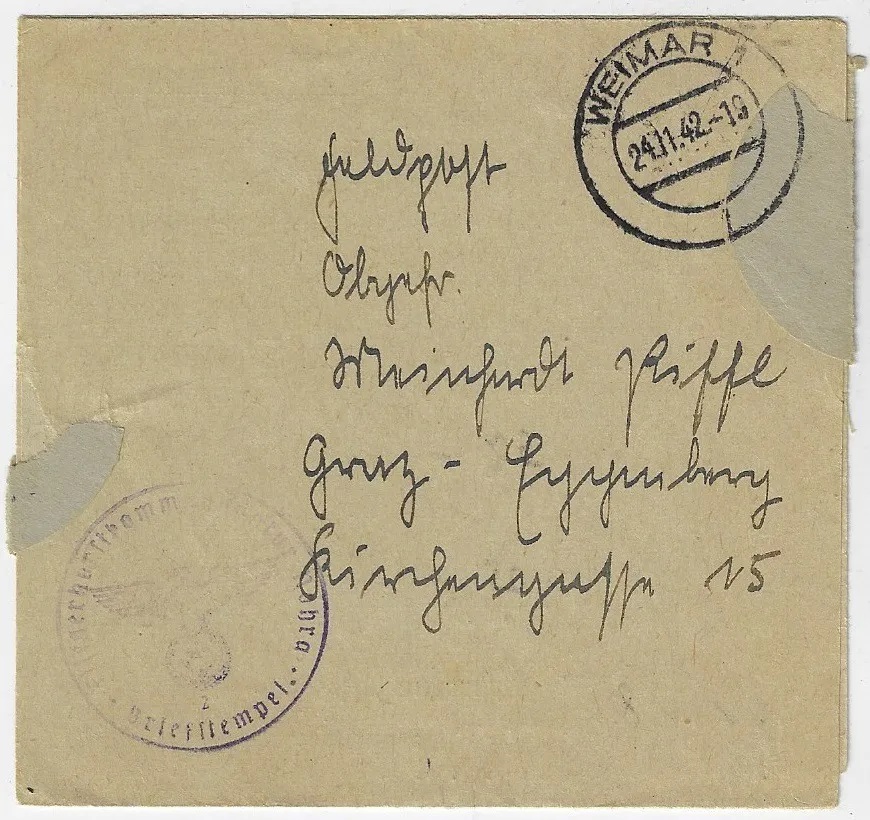 WEIMAR
24.11.42.-19
Feldpost
Obgefr.
Meinhardt Piffl
Graz - Eggenberg
Kirchengasse 15
2
Briefstempel